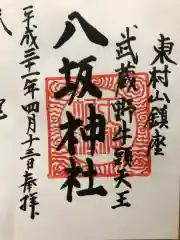 東村山鎮座
武蔵野牛頭天王
八坂神社
平成三十一年四月十三日奉拝